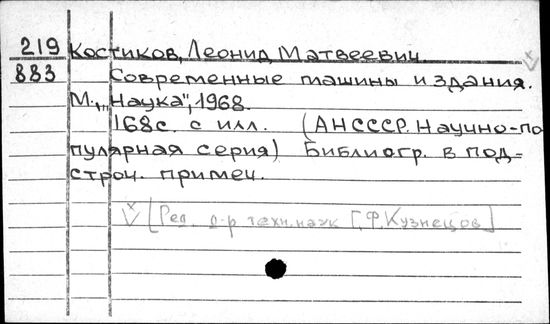 219 Костиков, Леонид Матвеевич.
883 Современные машины и здания.
М., „Наука", 1968.
168с. с илл. (АН СССР. Научно-по
пулярная серия) Библиогр. в под-
строч. примеч.
V [Ред. д-р техн. наук Г.Ф. Кузнецов]